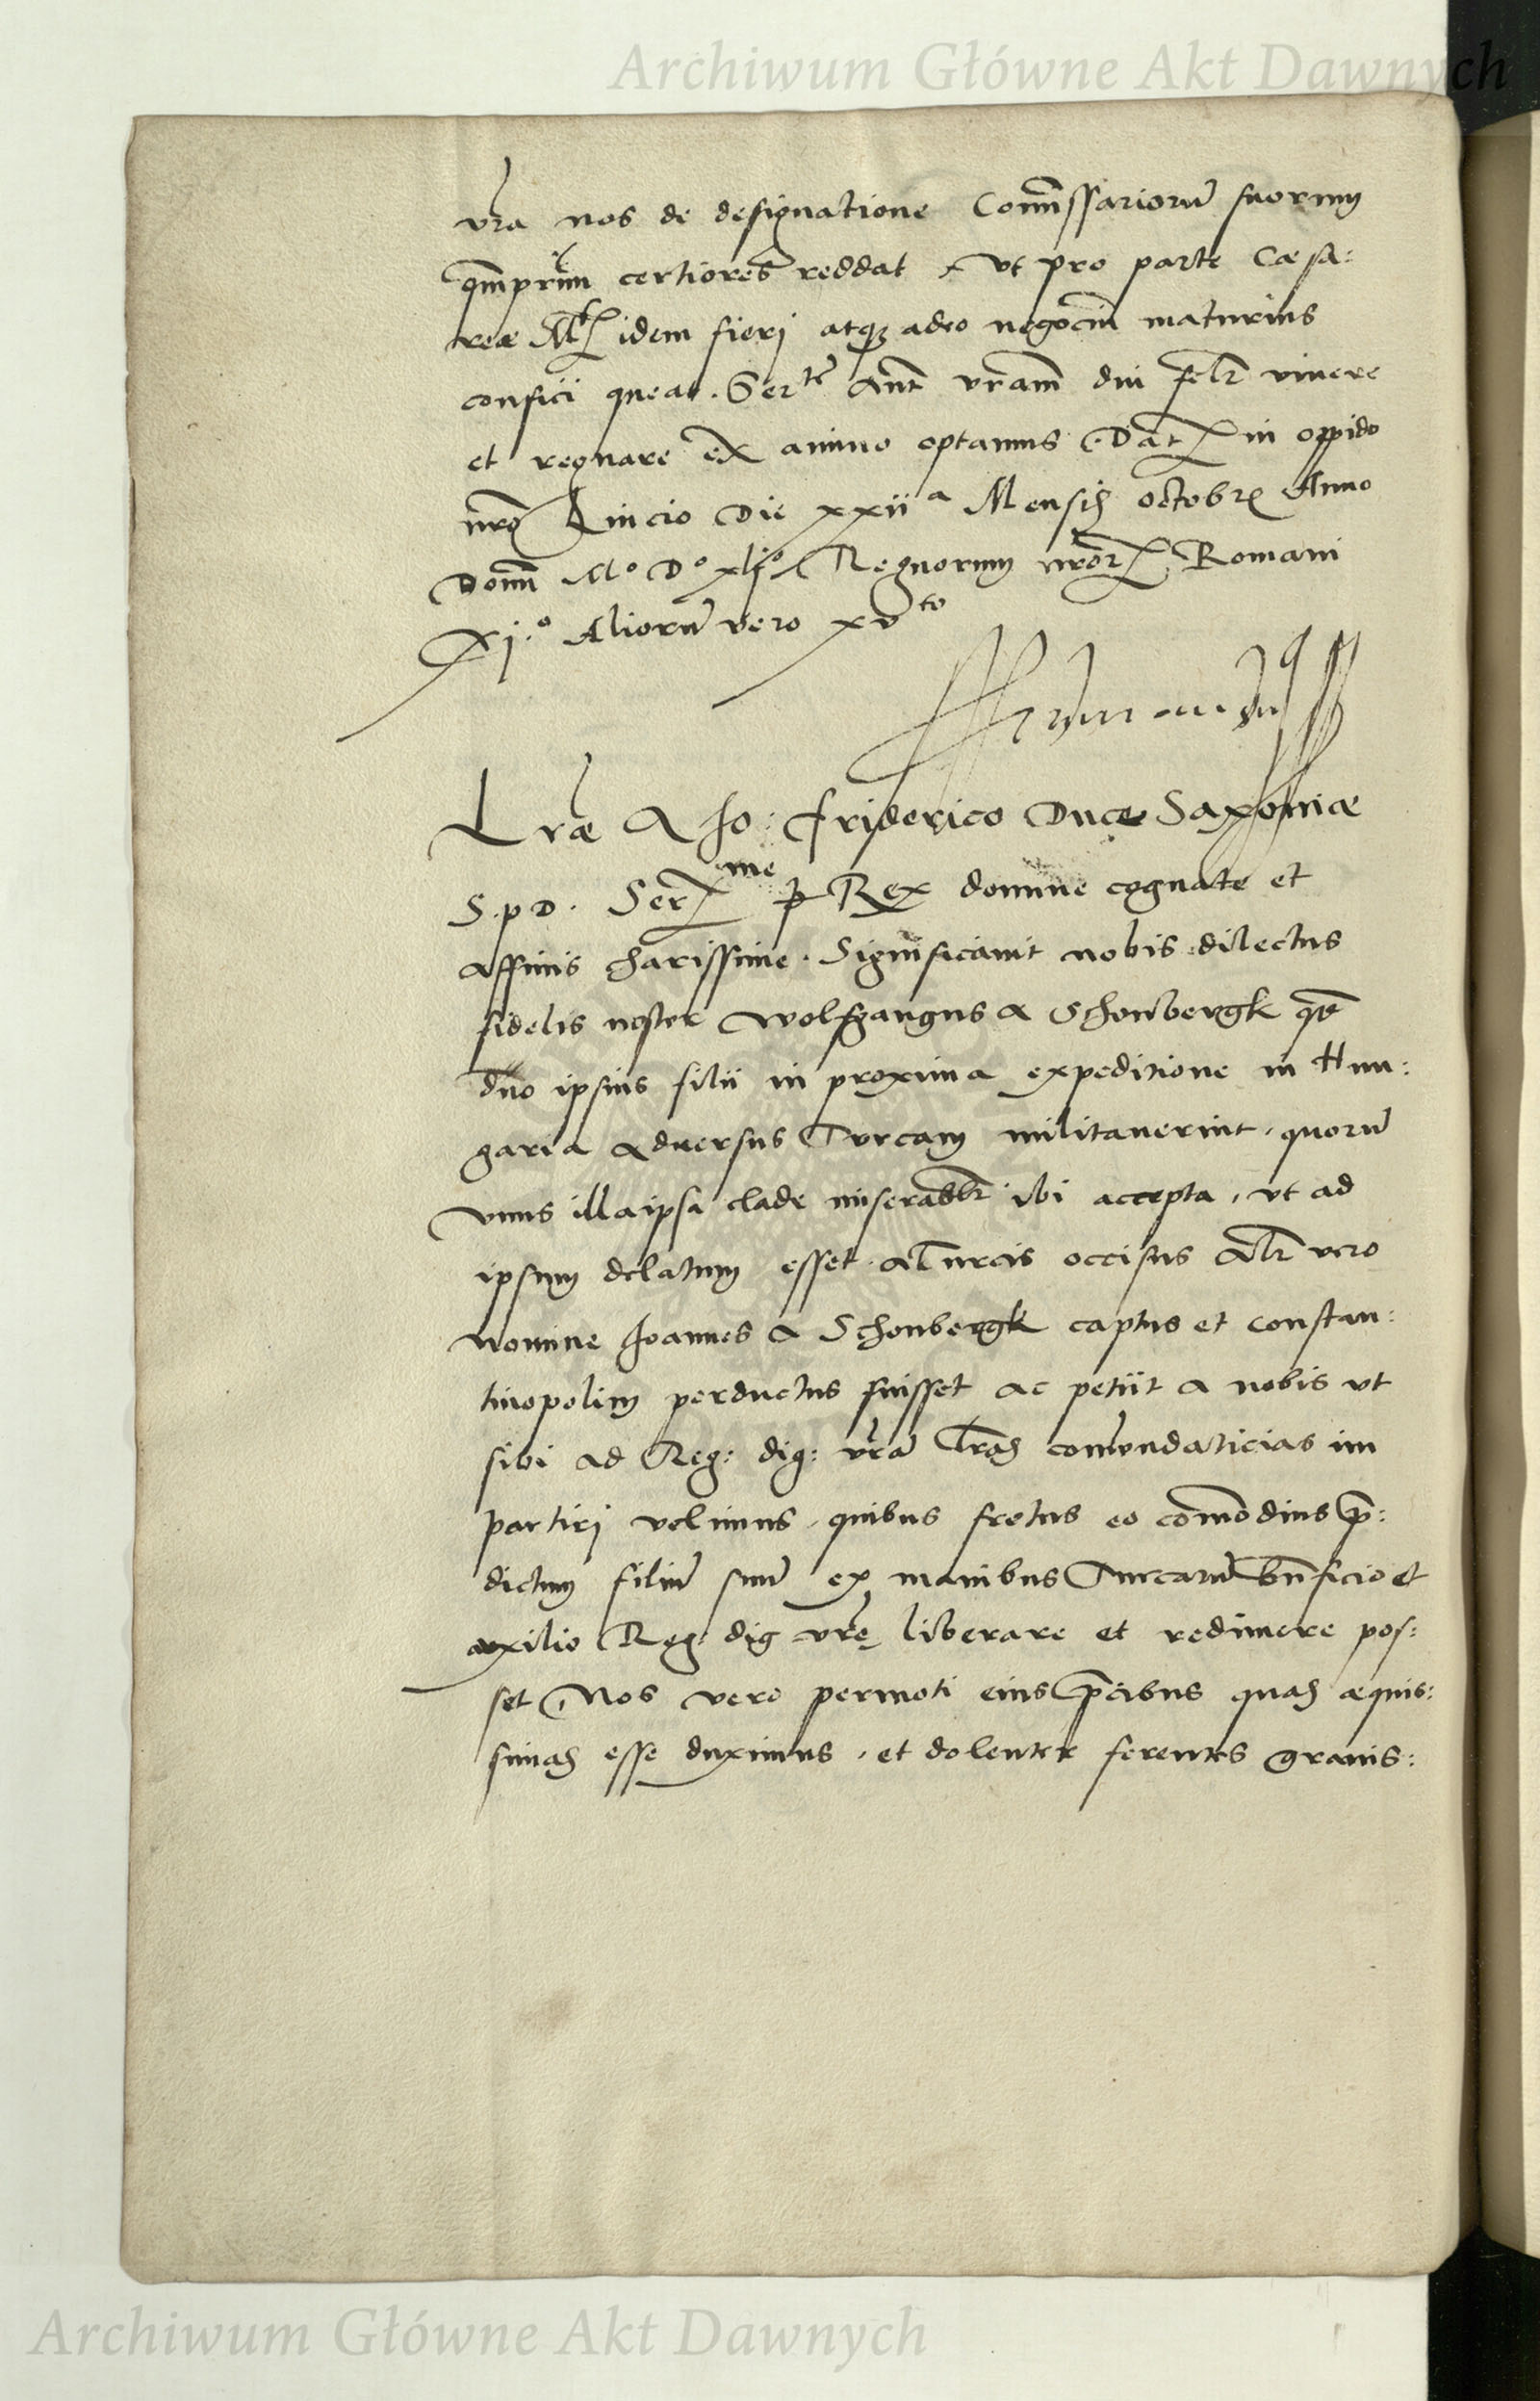 Archiwum Główne Akt Dawnych
vr̃a nos de designatione Com̃issariorũ suorum
qm̃primũ certiores reddat, vt pro parte Cæsa:
reæ Mtis idem fieri atq; adeo negociũ maturius
confici queat. Serte Aut̃ vr̃am diu felr̃ viuere
et regnare ex animo optamus. Dat in oppido
nr̃o Lincio Die xxiia Mensis octobr̃ Anno
Domĩ Mo Do xljo, Regnorum nr̃or Romani
Xj.o Aliorũ vero xvto
Lr̃æ A Jo: Friderico Duce Saxoniæ
S. p D. Serme p Rex domine cognate et
affinis charissime. Significauit nobis dilectus
fidelis noster Wolfgangus a Schonbergk qd̃
duo ipsius filii in proxima expeditione in Hun:
garia aduersus Turcam militauerint, quorũ
vnus illa ipsa clade miserabilr̃ ibi accepta, vt ad
ipsum delatum esset. a Turcis occisus Altr̃ vero
nomine Joannes a Schonbergk captus et constan:
tinopolim perductus fuisset ac petiit a nobis vt
sibi ad Reg: dig: vr̃ã lr̃as com̃endaticias im
partiri velimus, quibus fretus eo com̃odius p̃:
dictum filiũ suũ ex manibus Turcarũ bñficio et
auxilio Reg: dig vr̃ę liberare et redimere pos:
set, Nos vero permoti eius p̃cibus quas æquis:
simas esse duximus, et dolenter ferentes grauis:
Archiwum Główne Akt Dawnych